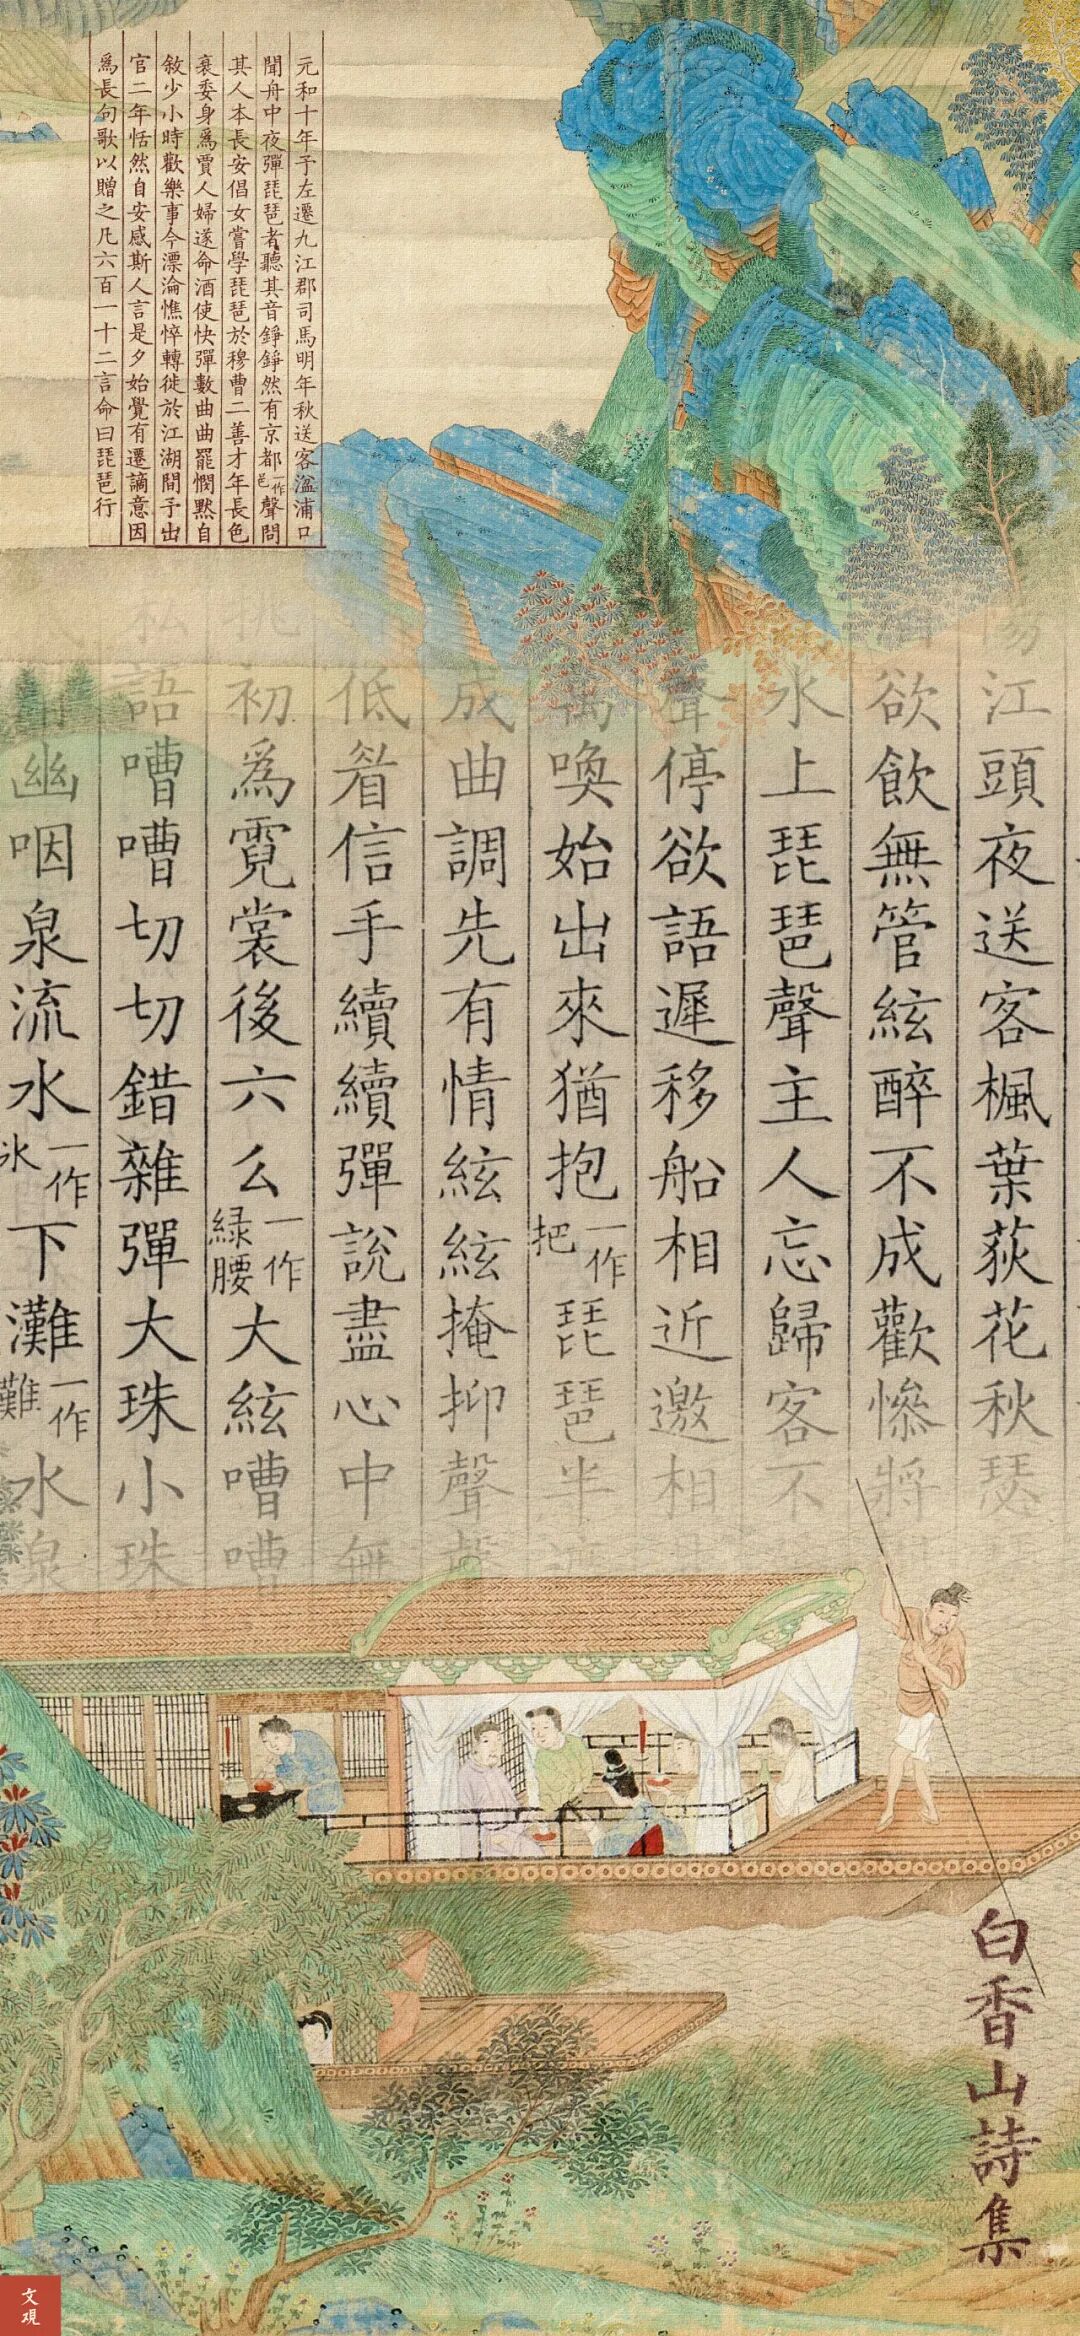 元和十年予左遷九江郡司馬明年秋送客湓浦口
聞舟中夜彈琵琶者聽其音錚錚然有京都一作邑聲問
其人本長安倡女嘗學琵琶於穆曹二善才年長色
衰委身爲賈人婦遂命酒使快彈數曲曲罷憫黙自
敘少小時歡樂事今漂淪憔悴轉徙於江湖間予出
官二年恬然自安感斯人言是夕始覺有遷謫意因
爲長句歌以贈之凡六百一十二言命曰琵琶行
江頭夜送客楓葉荻花秋瑟
欲飲無管絃醉不成歡慘將
水上琵琶聲主人忘歸客不
聲停欲語遲移船相近邀相
喚始出來猶抱一作把琵琶半
成曲調先有情絃絃掩抑聲
低眉信手續續彈說盡心中無
初爲霓裳後六么一作緑腰大絃嘈嘈
私語嘈嘈切切錯雜彈大珠小珠
幽咽泉流水一作氷下灘一作難水泉
白香山詩集
文观